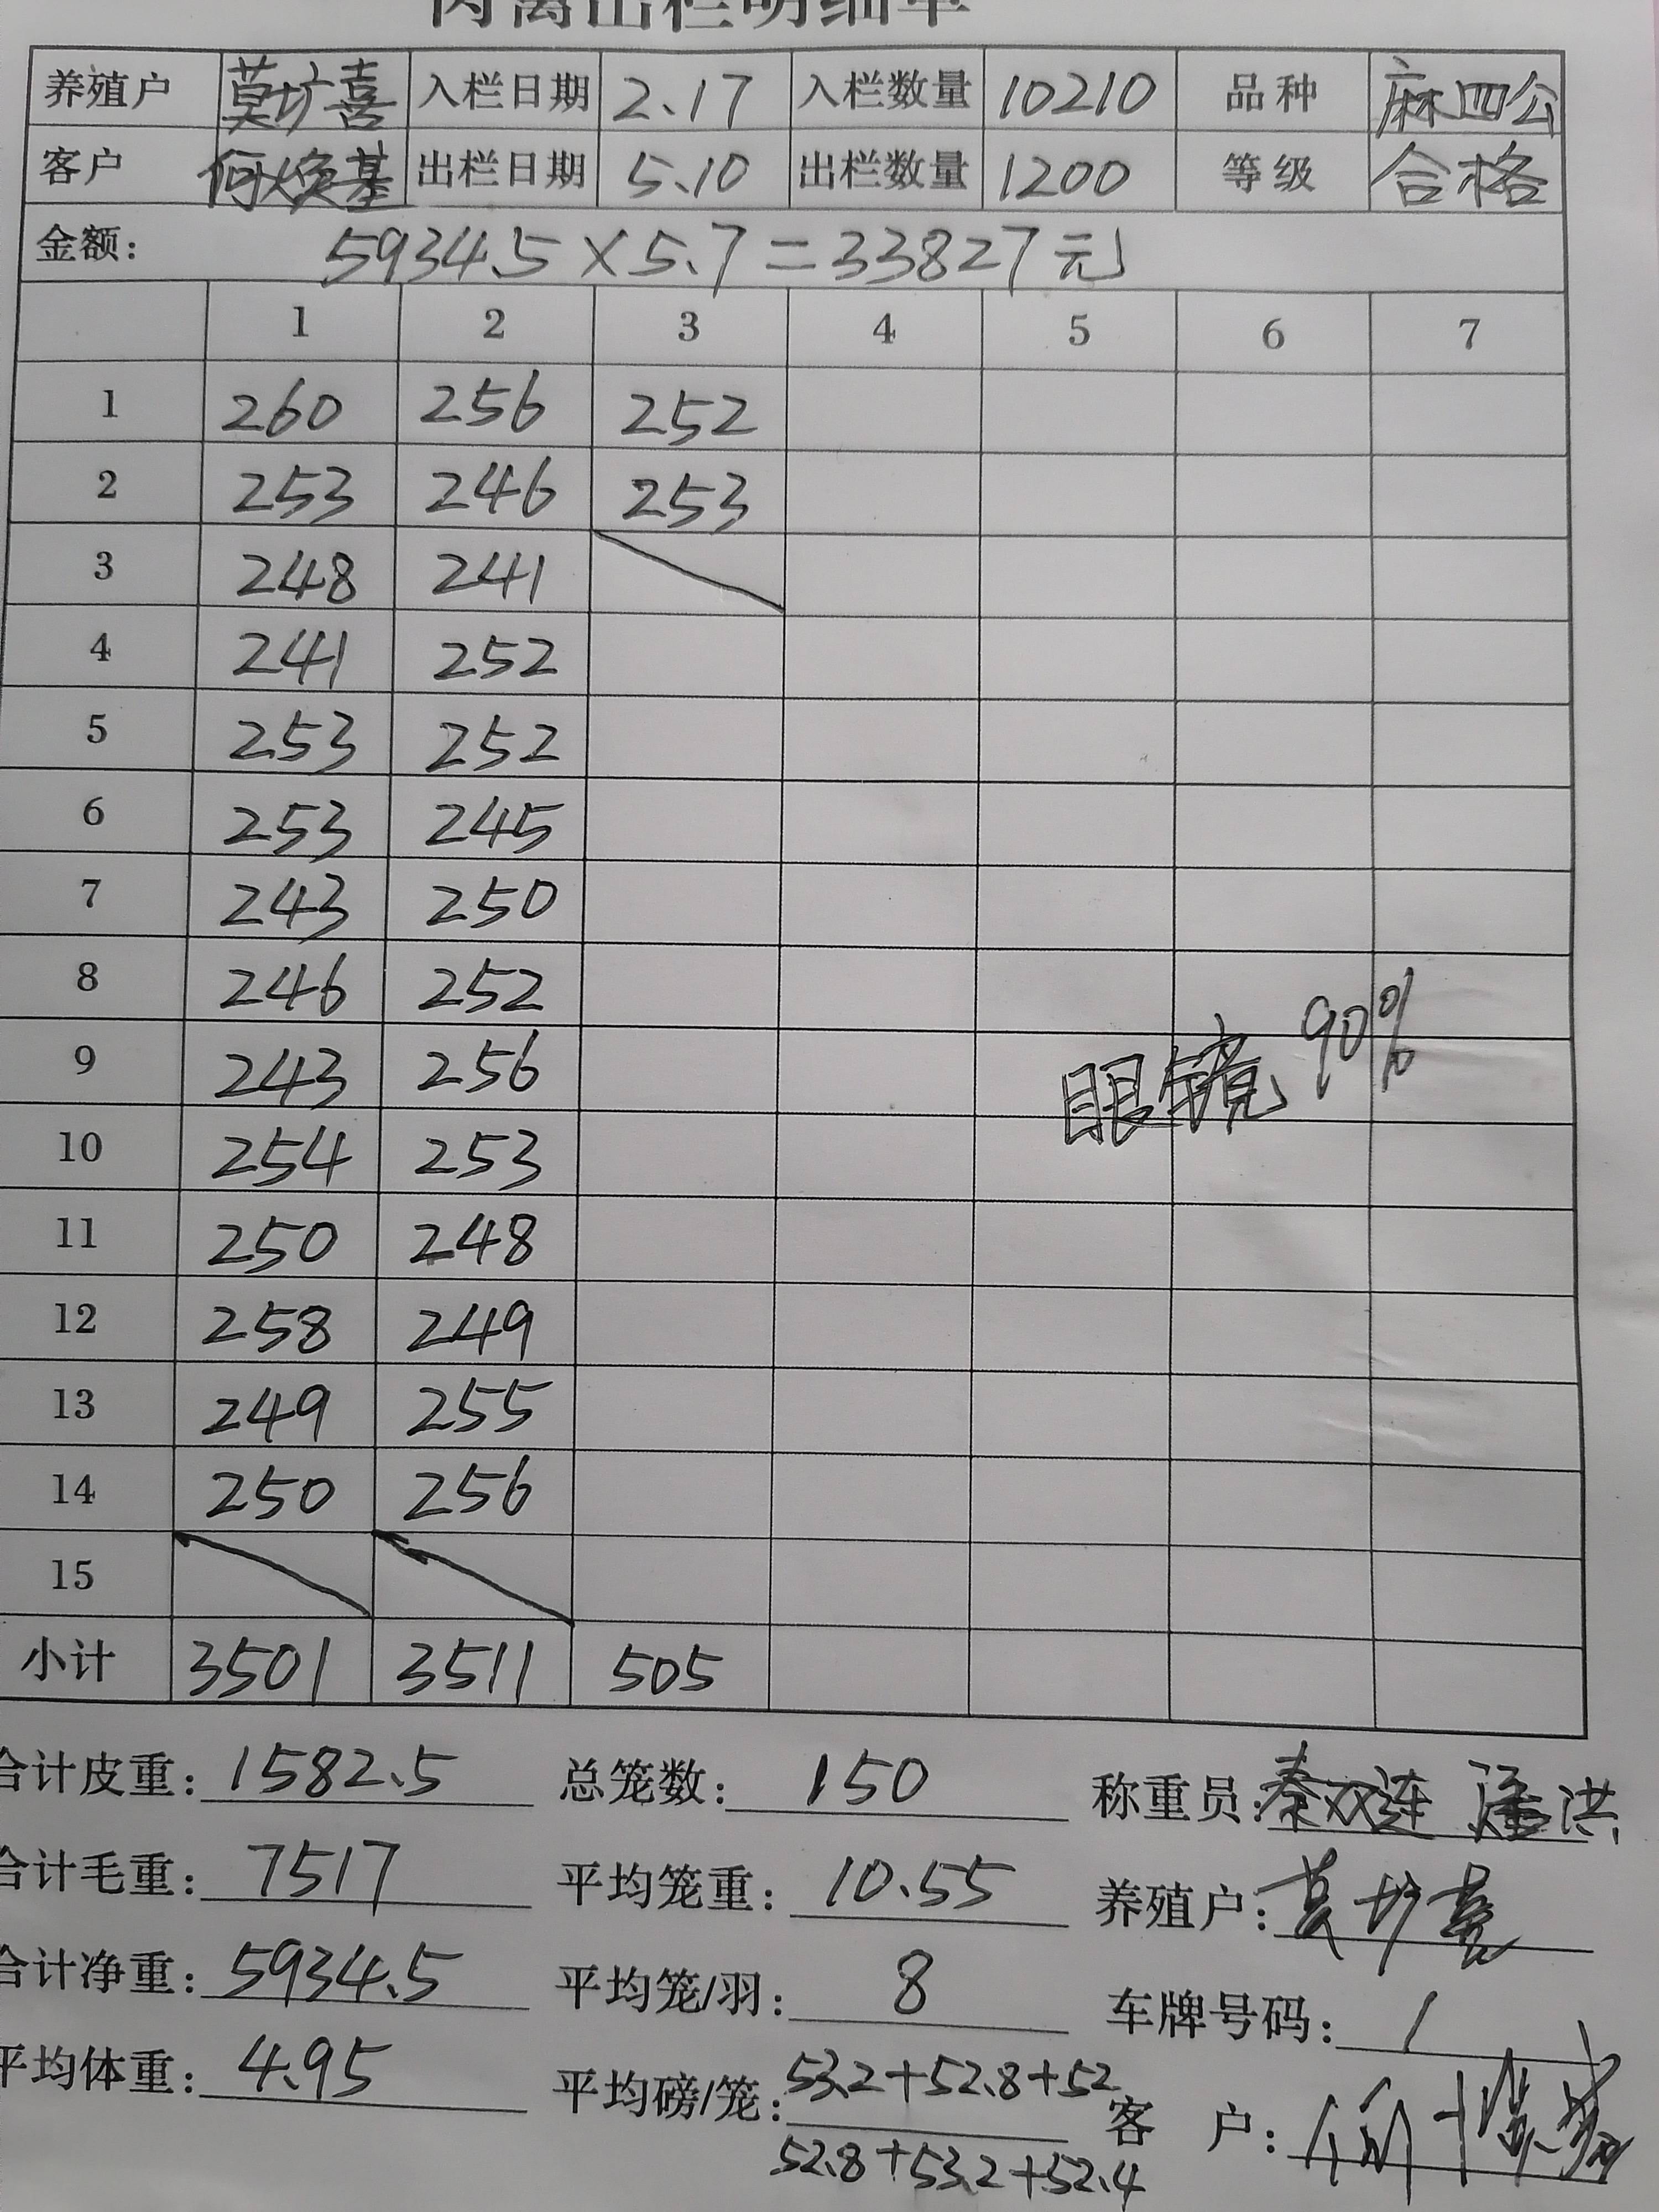 肉禽出栏明细单
养殖户 莫圹喜 入栏日期 2.17 入栏数量 10210 品种 麻四公
客户 何焕基 出栏日期 5.10 出栏数量 1200 等级 合格
金额: 5934.5×5.7=33827元
1 2 3 4 5 6 7
1 260 256 252
2 253 246 253
3 248 241
4 241 252
5 253 252
6 253 245
7 243 250
8 246 252
9 243 256
眼镜90%
10 254 253
11 250 248
12 258 249
13 249 255
14 250 256
15
小计 3501 3511 505
合计皮重: 1582.5 总笼数: 150 称重员: 秦双连 洪
合计毛重: 7517 平均笼重: 10.55 养殖户: 莫圹喜
合计净重: 5934.5 平均笼/羽: 8 车牌号码: /
平均体重: 4.95 平均磅/笼: 53.2+52.8+52 客户: 何焕基
52.8+53.2+52.4